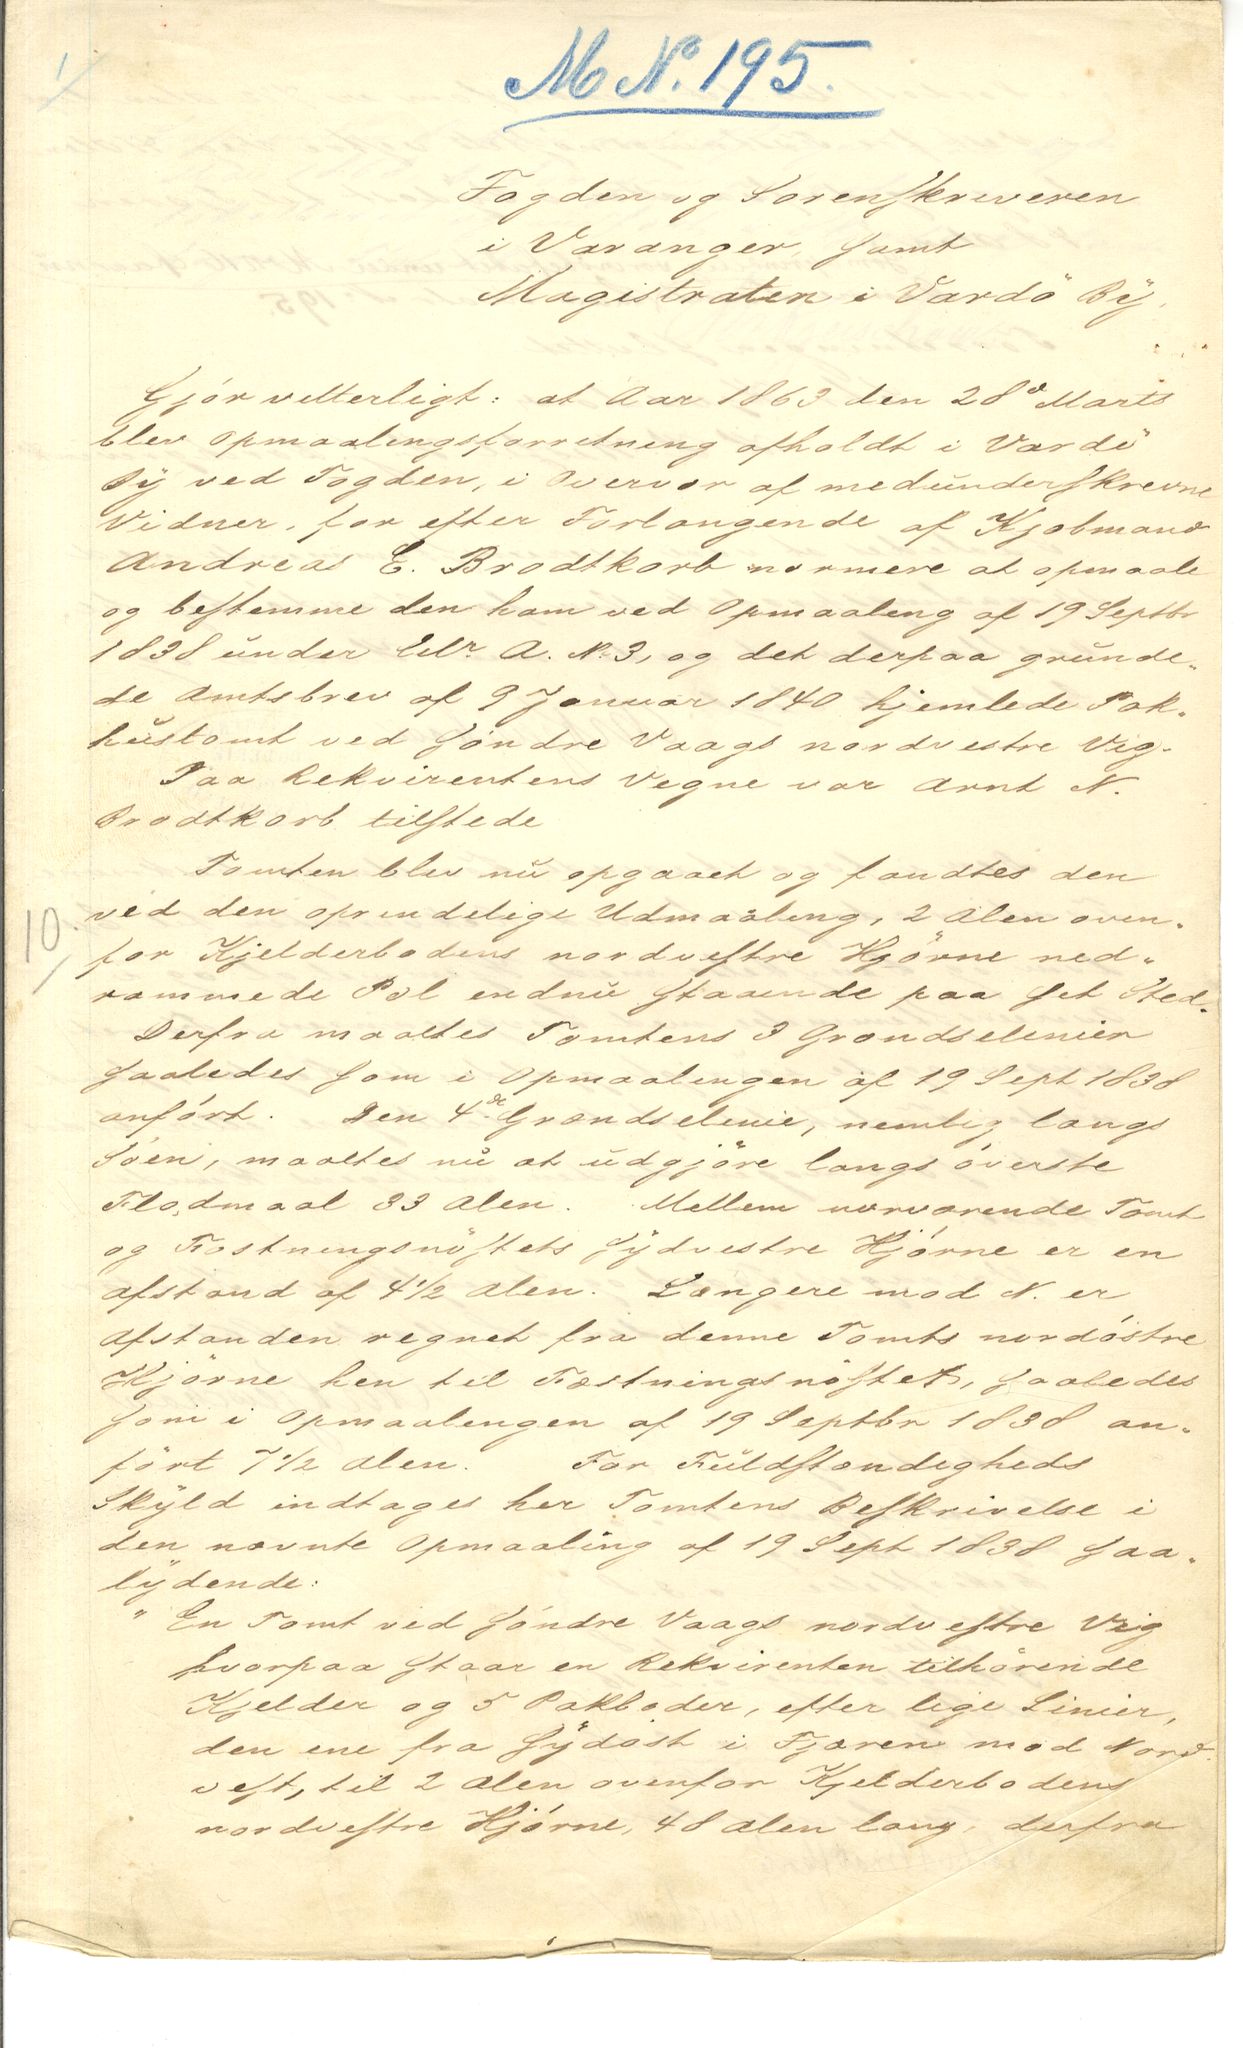 1
M No. 195.
Fogden og Sorenskriveren
i Varanger, samt
Magistraten i Vardö By,
Gjör vetterligt: at Aar 1863 den 28de Marts
blev Opmaalingsforretning afholdt i Vardö
By ved Fogden, i Overvær af medunderskrevne
Vidner, for efter Forlangende af Kjøbmand
Andreas E. Brodtkorb nærmere at opmaale
og bestemme den ham ved Opmaaling af 19 Septbr
1838 under Litr. A. No. 3, og det derpaa grunde„
de Amtsbrev af 9 Januar 1840 hjemlede Pak„
hustomt ved söndre Vaags nordvestre Vig.
Paa Rekvirentens Vegne var Arnt N.
Brodtkorb tilstede
Tomten blev nu opgaaet og fandtes den
ved den oprindelige Udmaaling, 2 Alen oven„
for Kjelderbodens nordvestre Hjörne ned„
rammede Pæl endnu staaende paa sit Sted.
Derfra maaltes Tomtens 3 Grændselinier
saaledes som i Opmaalingen af 19 Sept 1838
anfört. Den 4de Grændselinie, nemlig langs
Söen, maaltes nu at udgjöre langs överste
Flodmaal 33 Alen. Mellem nærværende Tomt
og Fæstningsnöstets sydvestre Hjörne er en
afstand af 4 1/2 Alen. Længere mod N. er
Afstanden regnet fra denne Tomts nordöstre
Hjörne hen til Fæstningsnöstet, saaledes
som i Opmaalingen af 19 Septbr 1838 an„
fört 7 1/2 Alen. For Fuldstændigheds
Skyld indtages her Tomtens Beskrivelse i
den nævnte Opmaaling af 19 Sept 1838 saa„
lydende:
" En Tomt ved söndre Vaags nordvestre Vig
hvorpaa staar en Rekvirenten tilhörende
Kjelder og 5 Pakboder, efter lige Linier,
den ene fra Sydöst i Fjæren mod Nord
vest, til 2 Alen ovenfor Kjelderbodens
nordvestre Hjörne, 48 Alen lang, derfra
10.